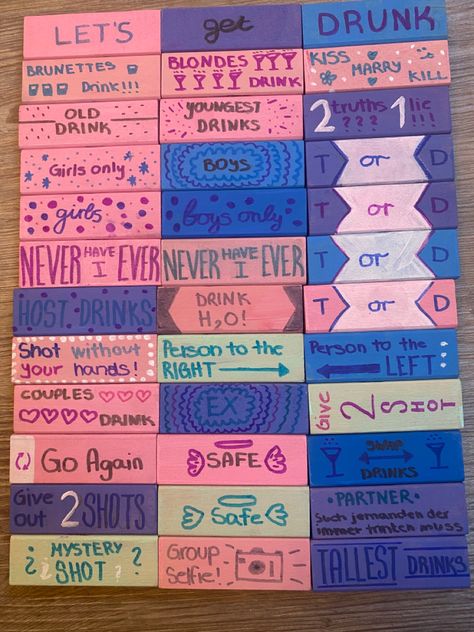 LET'S
get
DRUNK
BRUNETTES
Drink!!!
BLONDES
DRINK
KISS
MARRY
KILL
OLD
DRINK
YOUNGEST
DRINKS
2 truths 1 lie !!!
? ? ?
Girls only
BOYS
T or D
girls
boys only
T or D
NEVER HAVE I EVER
NEVER HAVE I EVER
T or D
HOST DRINKS
DRINK
H₂O!
T or D
Shot without
your hands!
Person to the
RIGHT
Person to the
LEFT
COUPLES
DRINK
EX
Give 2 SHOT
Go Again
SAFE
swap
DRINKS
Give
out 2 SHOTS
Safe
• PARTNER •
Such jemanden der
immer trinken muss
? MYSTERY
? SHOT ?
Group
Selfie!
TALLEST DRINKS